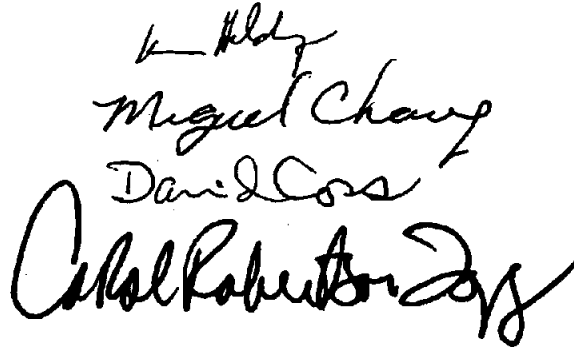 Miguel Chavez
David Coss
Carol Robertson Lopez